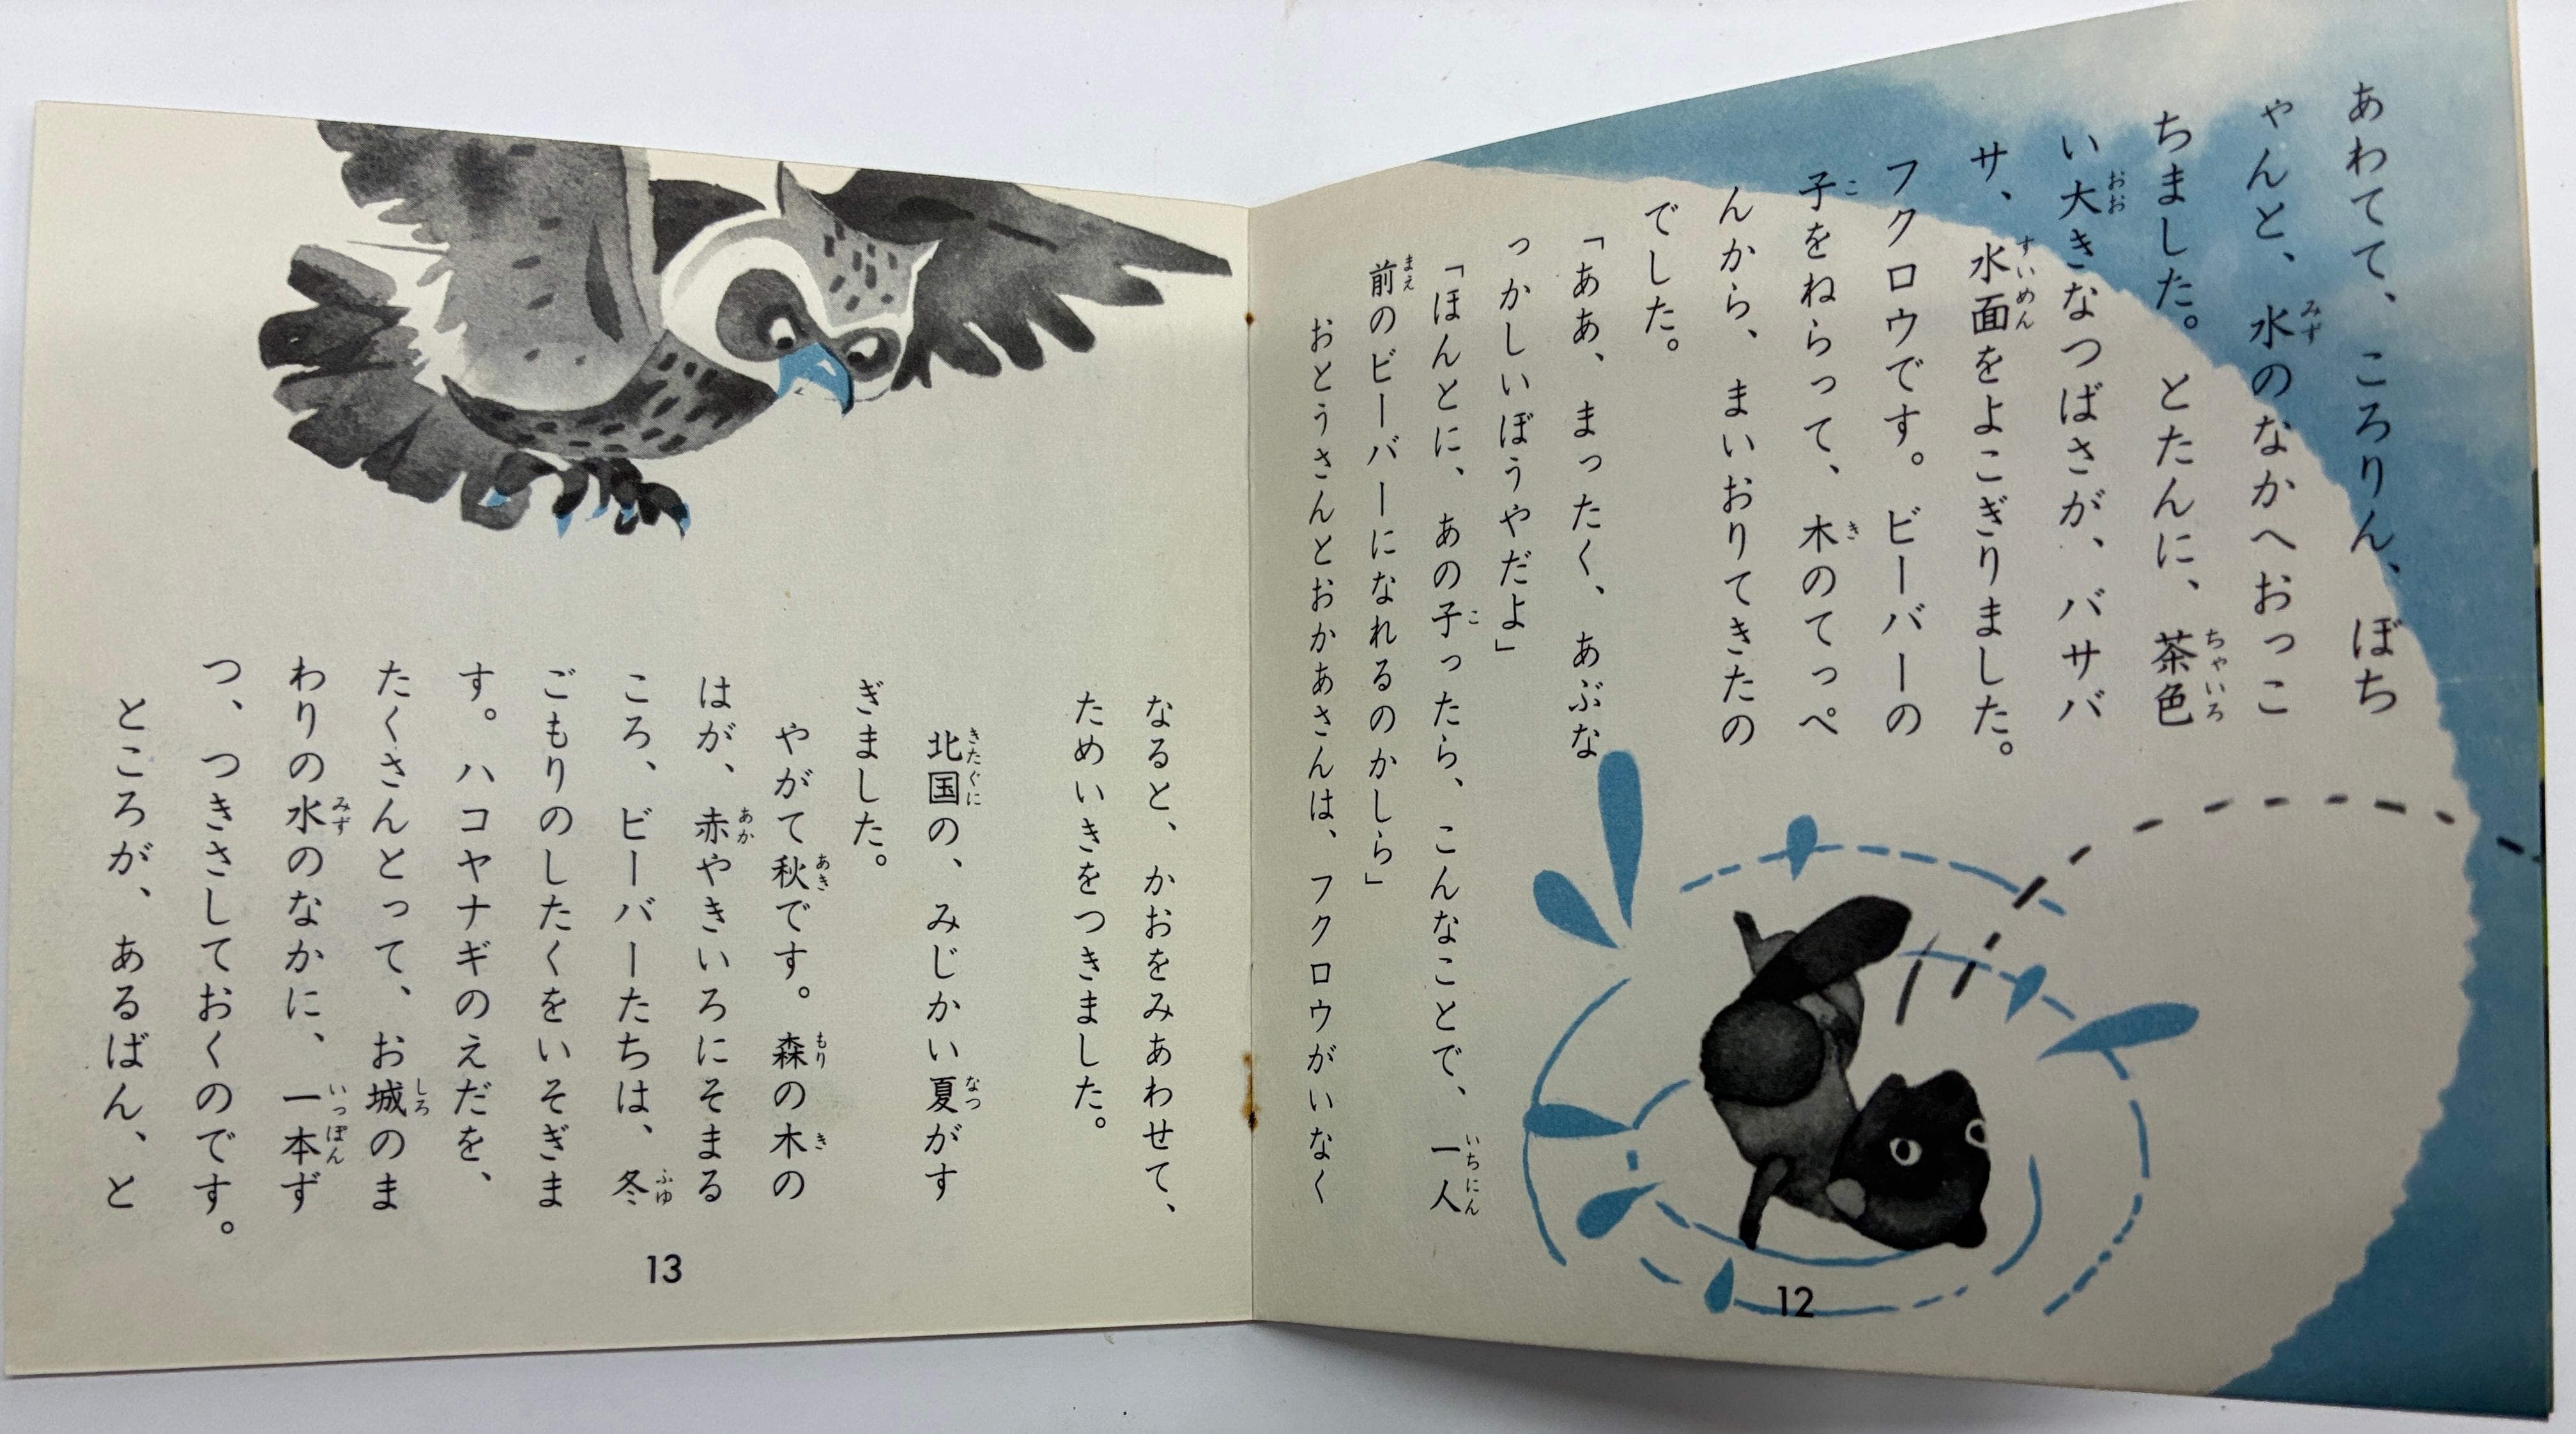 あわてて、ころりん、ぼち
ゃんと、水のなかへおっこ
ちました。とたんに、茶色
い大きなつばさが、バサバ
サ、水面をよこぎりました。
フクロウです。ビーバーの
子をねらって、木のてっぺ
んから、まいおりてきたの
でした。
「ああ、まったく、あぶな
っかしいぼうやだよ」
「ほんとに、あの子ったら、こんなことで、一人
前のビーバーになれるのかしら」
おとうさんとおかあさんは、フクロウがいなく
12
なると、かおをみあわせて、
ためいきをつきました。
北国の、みじかい夏がす
ぎました。
やがて秋です。森の木の
はが、赤やきいろにそまる
ころ、ビーバーたちは、冬
ごもりのしたくをいそぎま
す。ハコヤナギのえだを、
たくさんとって、お城のま
わりの水のなかに、一本ず
つ、つきさしておくのです。
ところが、あるばん、と
13